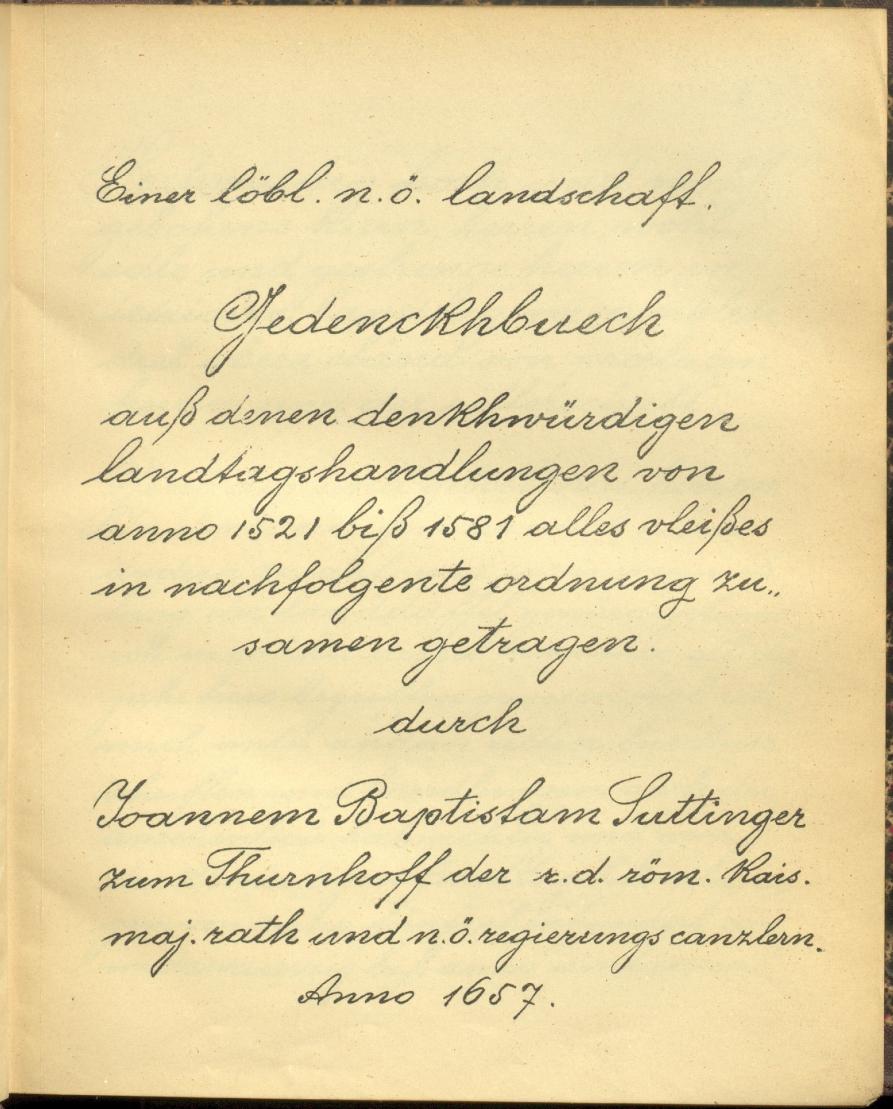 Einer löbl. n. ö. landschaft.
Gedenckhbuech
auß denen denkhwürdigen
landtagshandlungen von
anno 1521 biß 1581 alles vleißes
in nachfolgente ordnung zu„
samen getragen.
durch
Joannem Baptistam Suttinger
zum Thurnhoff der r. d. röm. kais.
maj. rath und n. ö. regierungs canzlern.
Anno 1657.